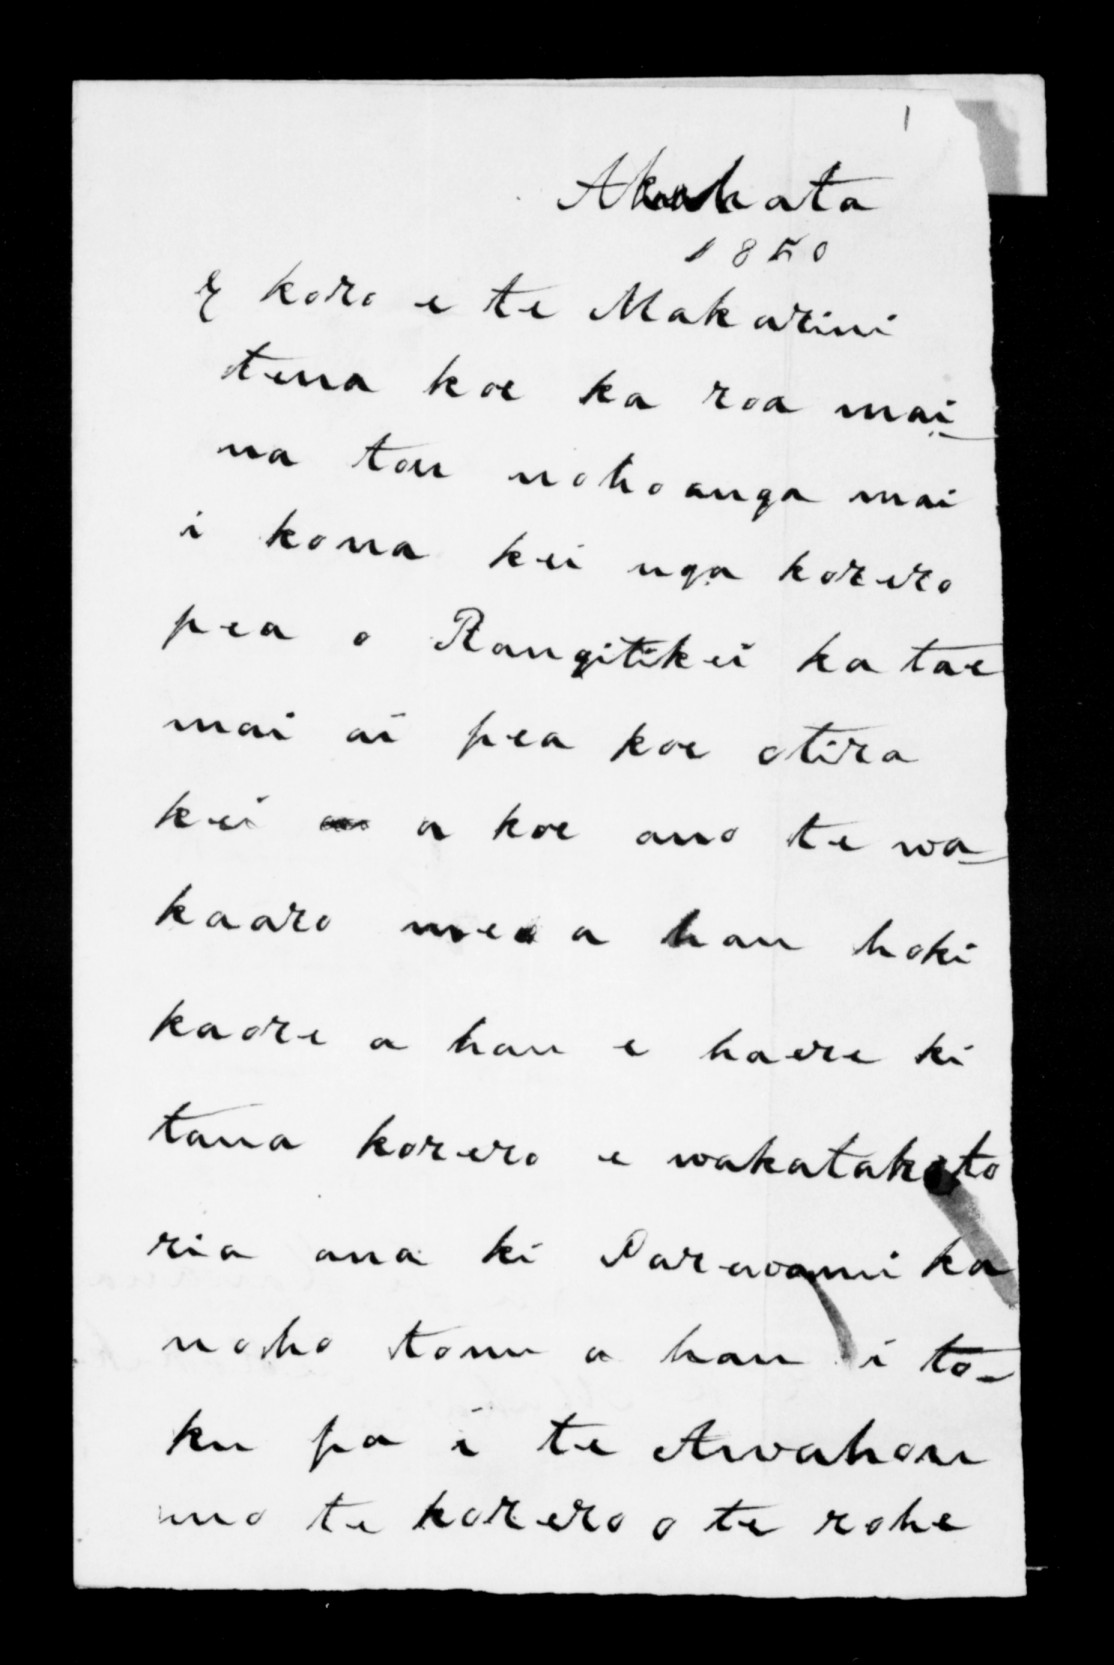 1
Akuhata
1850
E koro e te Makarini
tena koe ka roa mai-
na tou nohoanga mai
i kona kei nga korero
pea o Rangitikei ka tae
mai ai pea koe otira
kei a koe ano te wa-
kaaro mea a hau hoki
kaore a hau e haere ki
tana korero e wakatakoto
ria ana ki Parewanui ka
noho tonu a hau i to-
ku pa i te Awahou
mo te korero o te rohe